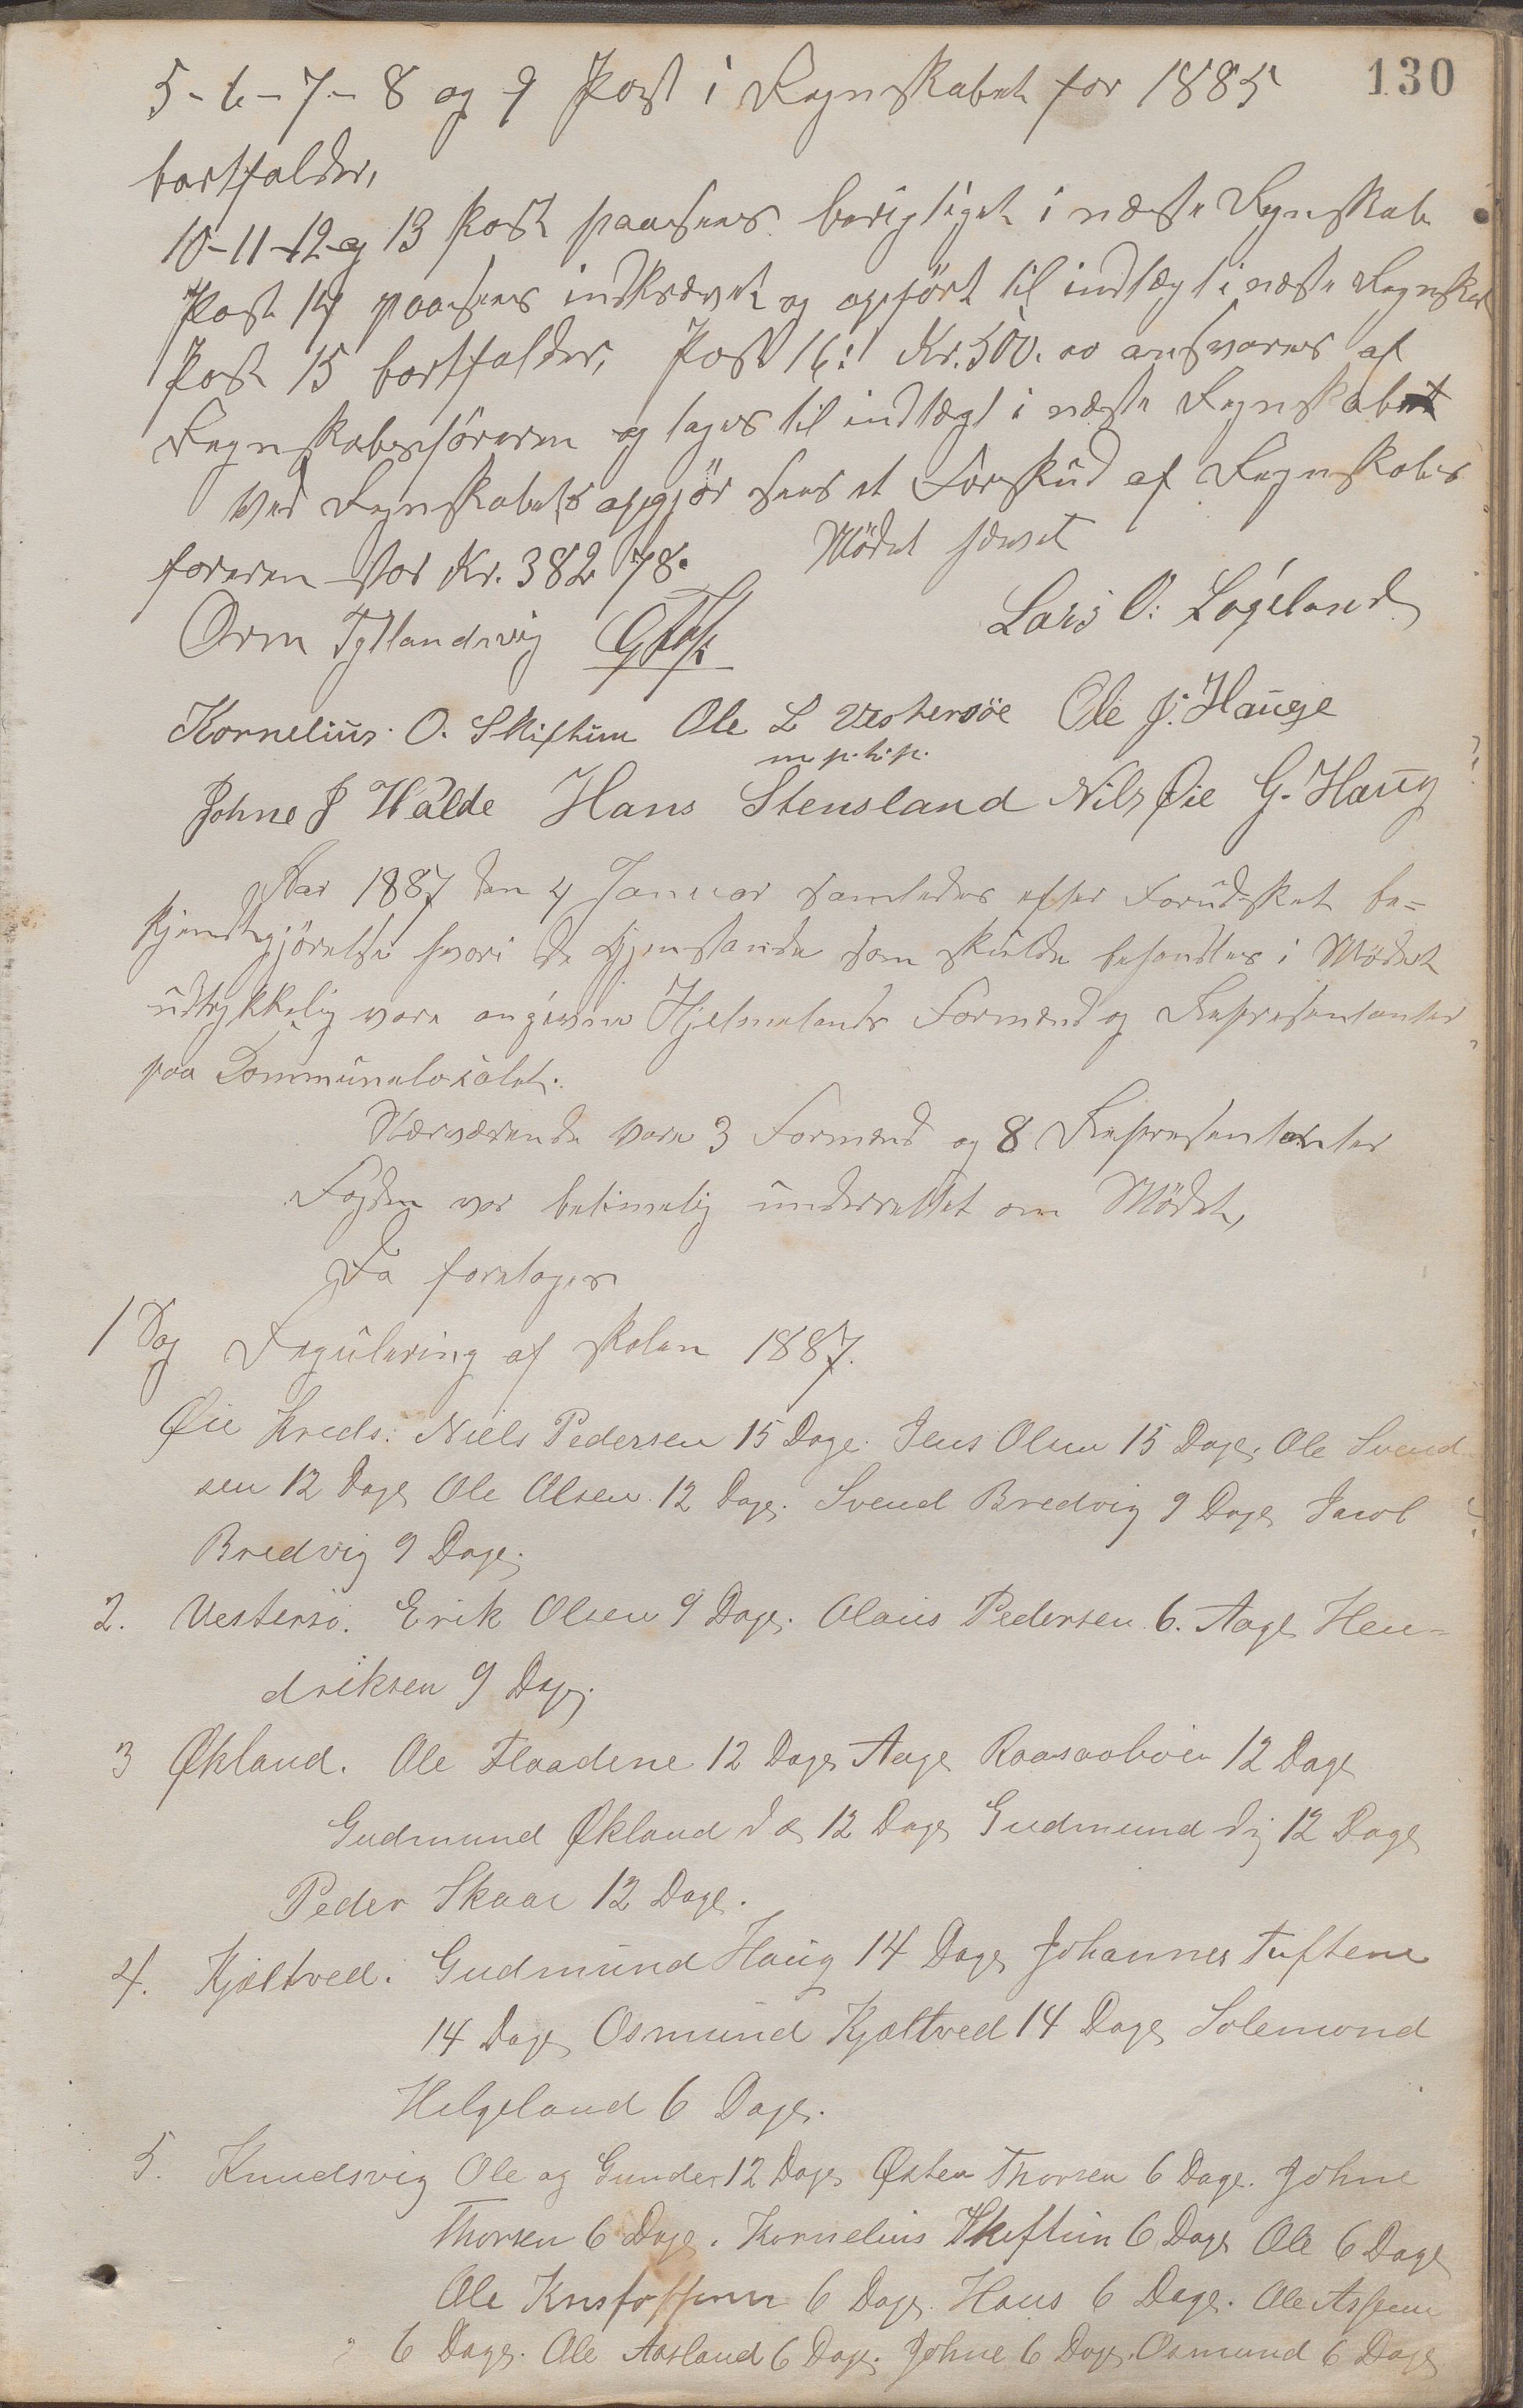 130
5-6-7-8 og 9 Post i Regnskabet for 1885
bortfalder,
10-11-12-og 13 Post paasees berigtiget i næste Regnskab
Post 14 paasees indkrævet og opført til indtægt i næste Regnskab
Post 15 bortfalder, Post 16: Kr. 500.00 ansvares af
Regnskabsføreren og tages til indtægt i næste Regnskabet
Ved Regnskabets opgjør sees et Forskud af Regnskabs
føreren stor Kr. 382 78. Mødet hævet
Orm Tytlandsvig Lars O: Laugeland
Kornelius O. Skiftun Ole L Vestersøe Ole J. Hauge
m. p. h. p.
Johne J Halde Hans Stensland Nils Øie G. Haug
Aar 1887 den 4 Januar samledes efter Forudsket be-
kjendtgjørelse hvori de Gjenstande som skulde behandles i Mødet
udtrykkelig vare angivne Hjelmelands Formænd og Repræsentanter
paa Kommunelokalet.
Nærværende vare 3 Formænd og 8 Repræsentanter
Fogden var betimelig underrettet om Mødet,
Da foretoges
1 Sag Regulering af skolen 1887.
Øie Kreds: Niels Pedersen 15 Dage. Jens Olsen 15 Dage. Ole Svend
sen 12 Dage Ole Olsen 12 Dage. Svend Bredvig 9 Dage Jacob
Bredvig 9 Dage.
2. Vestersø. Erik Olsen 9 Dage. Olaus Pedersen 6. Aage Hen-
driksen 9 Dage.
3 Økland. Ole Flaadene 12 Dage Aage Raasaabøen 12 Dage
Gudmund Økland d æ 12 Dage Gudmund dy 12 Dage
Peder Skaar 12 Dage.
4. Kjæltved. Gudmund Haug 14 Dage Johannes Tuftene
14 Dage Osmund Kjæltved 14 Dage Solemond
Helgeland 6 Dage.
5. Knudsvig Ole og Gunder 12 Dage Østen Thorsen 6 Dage. Johne
Thorsen 6 Dage. Kornelius Skiftun 6 Dage Ole 6 Dage
Ole 6 Dage. Hans 6 Dage. Ole
6 Dage. Ole Aasland 6 Dage. Johne 6 Dage. Osmund 6 Dage